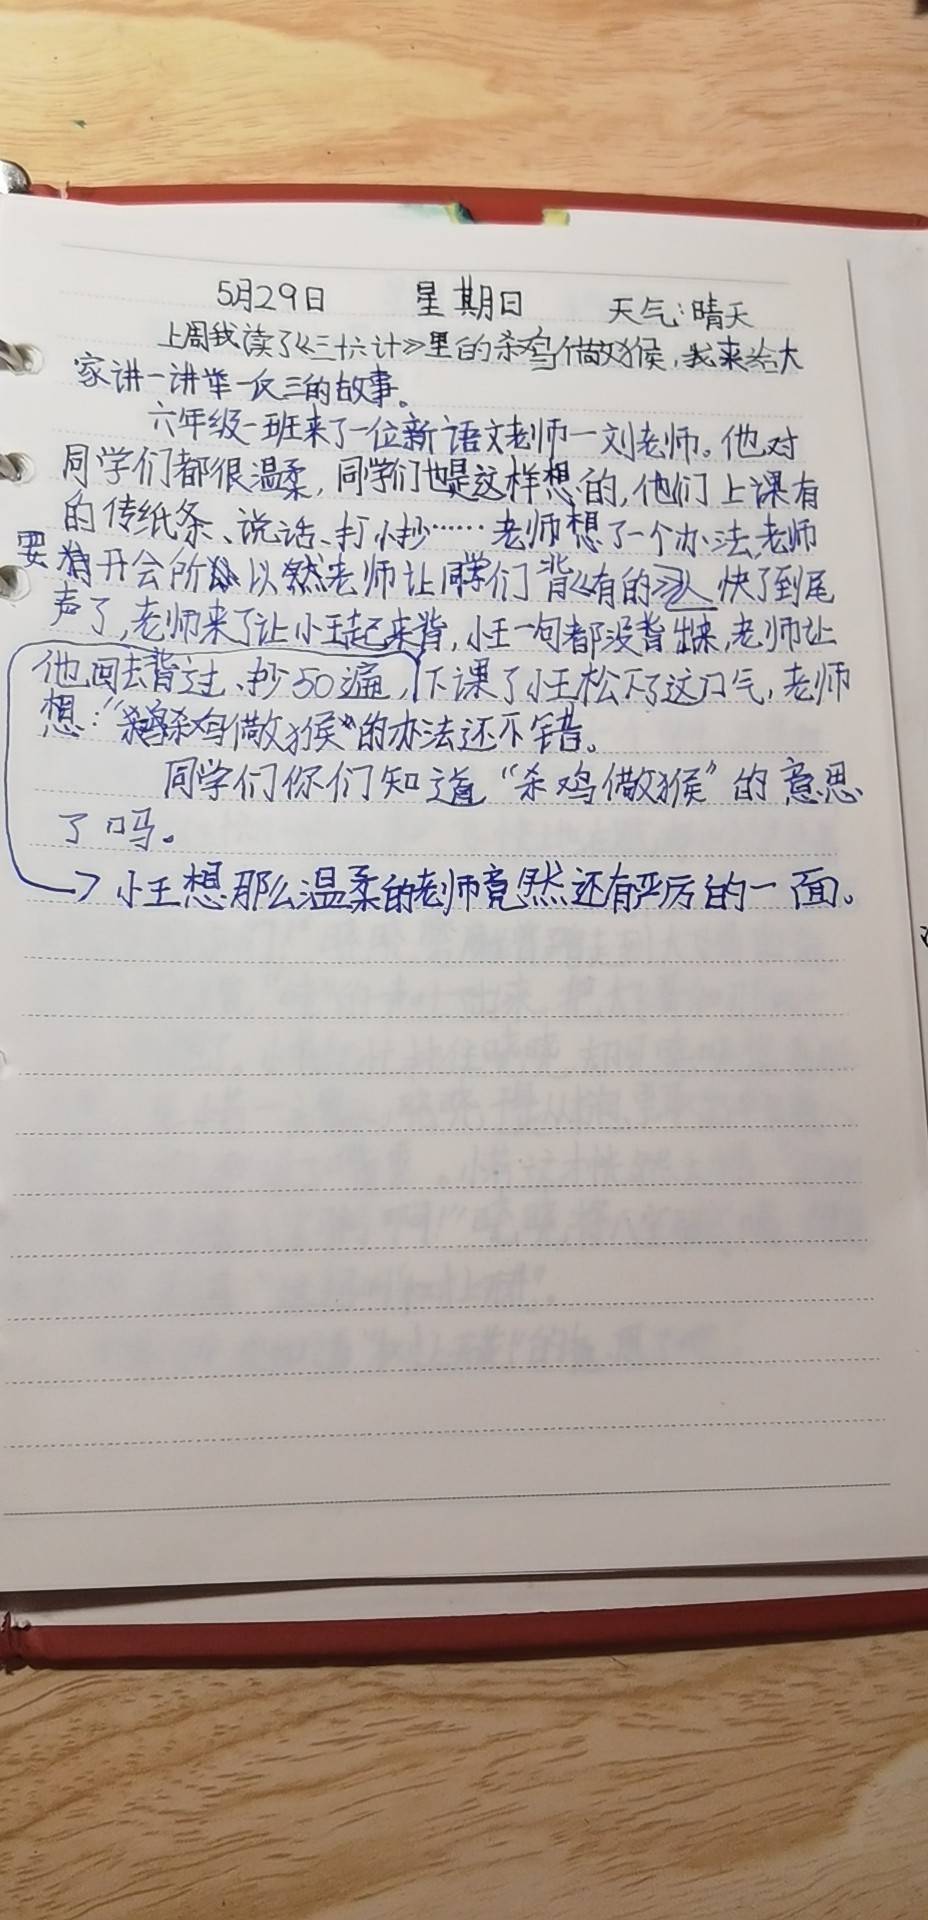 5月29日 星期日 天气:晴天
上周我读了《三十六计》里的杀鸡儆猴,我来给大
家讲一讲举一反三的故事。
六年级一班来了一位新语文老师一刘老师。他对
同学们都很温柔,同学们也是这样想的,他们上课有
的传纸条、说话、打小抄……老师想了一个办法,老师
要开会所以然老师让同学们背《有的人》快了到尾
声了,老师来了让小王起来背,小王一句都没背出来,老师让
他回去背过、抄50遍,下课了小王松下了这口气,老师
想:“杀鸡儆猴”的办法还不错。
同学们你们知道“杀鸡儆猴”的意思
了吗。
小王想那么温柔的老师竟然还有严厉的一面。